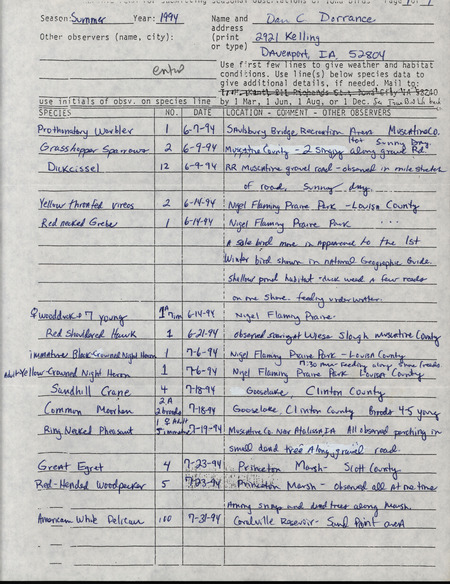 Season: Summer Year: 1994 Name and Dan C Dorrance
address
Other observers (name, city): (print 2921 Kelling
or type) Davenport, IA, 52804
entered
Use first few lines to give weather and habitat
conditions. Use line(s) below species data to
give additional details, if needed. Mail to:
use initials of obsv. on species line by 1 Mar, 1 Jun, 1 Aug, or 1 Dec.
SPECIES NO. DATE LOCATION - COMMENT - OTHER OBSERVERS
Hot Sunny Day.
Prothonotary Warbler 1 6-7-94 Bridge, Recreation Area Muscatine Co.
Grasshopper Sparrows 2 6-9-94 Muscatine County - 2 Singing along gravel Rd
Dickcissel 12 6-9-94 RR Muscatine gravel road - observed in mile stretch
of road, Sunny day.
Yellow throated vireos 2 6-14-94 Nigel Flaming Praire Park - Louisa County
Red necked Grebe 1 6-14-94 Nigel Flaming Praire Park
A sole bird more in appearance to the 1st
Winter bird shown in National Geographic Guide.
Shallow pond habitat - duck weed a few reeds
on one shore. feeding under water.
♀ wood duck & 7 young 1A 7im 6-14-94 Nigel Flaming Praire
Red Shouldered Hawk 1 6-21-94 observed Wiese Slough Muscatine County
immature Black-Crowned Night Heron 1 7-6-94 Nigel Flaming Praire Park - Louisa County
7:30 feeding along shore/reeds
Adult Yellow-Crowned Night Heron 1 7-6-94 Nigel Flaming Praire Park Louisa County
Sandhill Crane 4 7-18-94 Gooselake, Clinton County
Common Moorhen 2A 2 broods 7-18-94 Gooselake, Clinton County Broods 4-5 young
Ring Necked Pheasant 1 ♀ Adult 5 immature 7-19-94 Muscatine Co. Near Atalissa IA All observed perching in
small dead tree Along gravel road.
Great Egret 4 7-23-94 Princeton Marsh - Scott County
Red-Headed Woodpecker 5 7-23-94 Princeton Marsh - observed all at one time
Among snags and dead trees along Marsh.
American White Pelican 100 7-31-94 Coralville Reservoir - Sand Point area